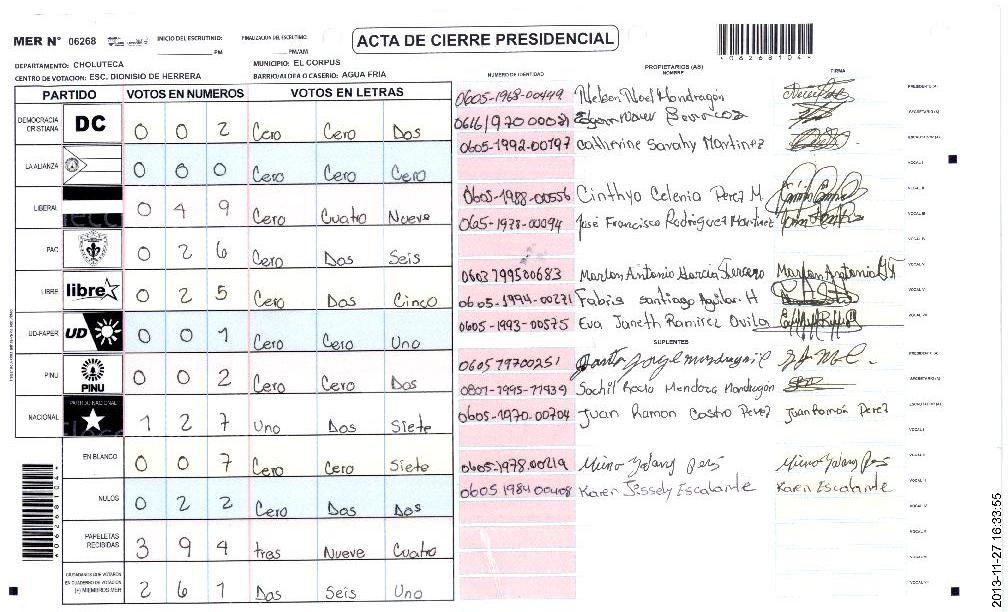 MER N° 06268 INICIO DEL ESCRUTINIO: PM FINALIZACION DEL ESCRUTINIO: PM/AM
ACTA DE CIERRE PRESIDENCIAL
06268104
DEPARTAMENTO: CHOLUTECA MUNICIPIO: EL CORPUS
CENTRO DE VOTACION: ESC. DIONISIO DE HERRERA BARRIO/ALDEA O CASERIO: AGUA FRIA
PARTIDO VOTOS EN NUMEROS VOTOS EN LETRAS
DEMOCRACIA CRISTIANA DC 0 0 2 Cero Cero Dos
LA ALIANZA 0 0 0 Cero Cero Cero
LIBERAL 0 4 9 Cero Cuatro Nueve
PAC 0 2 6 Cero Dos Seis
LIBRE libre 0 2 5 Cero Dos Cinco
UD-FAPER UD 0 0 1 Cero Cero Uno
PINU PINU 0 0 2 Cero Cero Dos
NACIONAL PARTIDO NACIONAL 1 2 7 Uno Dos Siete
EN BLANCO 0 0 7 Cero Cero Siete
NULOS 0 2 2 Cero Dos Dos
PAPELETAS RECIBIDAS 3 9 4 tres Nueve Cuatro
CIUDADANOS QUE VOTARON EN CUADERNO DE VOTACION (+) MIEMBROS MER 2 6 1 Dos Seis Uno
PROPIETARIOS (AS)
NUMERO DE IDENTIDAD NOMBRE FIRMA
0605-1968-00449 Nelson Noel Mondragón PRESIDENTE (A)
Edgar SECRETARIO (A)
0605-1992-00797 Catherine Sarahy Martinez ESCRUTADOR (A)
VOCAL I
0605-1988-00556 Cinthya Celenia Perez M. VOCAL II
065-1978-00094 José Francisco Rodriguez Martinez VOCAL III
VOCAL IV
0603799500683 Marlon Antonio Marlon Antonio VOCAL V
0605-1994-00271 Fabis santiago Aguilar H VOCAL VI
0605-1993-00575 Eva Janeth Ramirez Avila VOCAL VII
SUPLENTES
060579700251 PRESIDENTE (A)
0801-1995-77939 Sochil Rocio Mendoza Mondragón SECRETARIO (A)
0605-1970-00704 Juan Ramon Castro Perez Juan Ramón Perez ESCRUTADOR (A)
VOCAL I
0605-1978-00219 VOCAL II
0605 1984 00408 Karen Jissely Escalante Karen Escalante VOCAL III
VOCAL IV
VOCAL V
VOCAL VI
VOCAL VII
06268104
2013-11-27 16:33:55